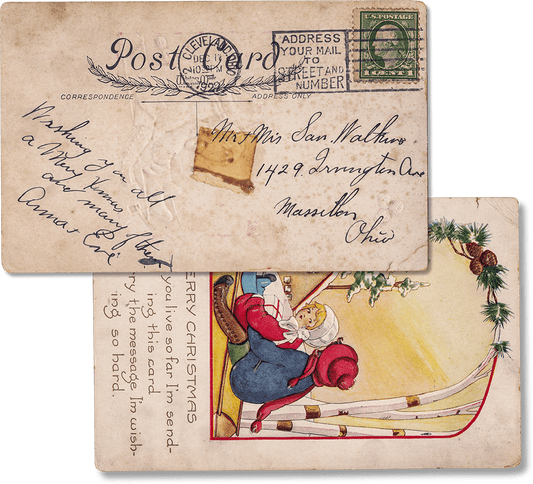 Post Card
CLEVELAND
DEC
ADDRESS
YOUR MAIL
TO
STREET AND
NUMBER
U.S. POSTAGE
1 CENT 1
CORRESPONDENCE
ADDRESS ONLY
Wishing you all
a Merry Xmas
and many of them
Anna & Evé
Mr & Mrs Sam Walkins
1429 Irvington Ave
Massillon
Ohio
MERRY CHRISTMAS
you live so far I'm send-
ing this card
ry the message I'm wish-
ing so hard.